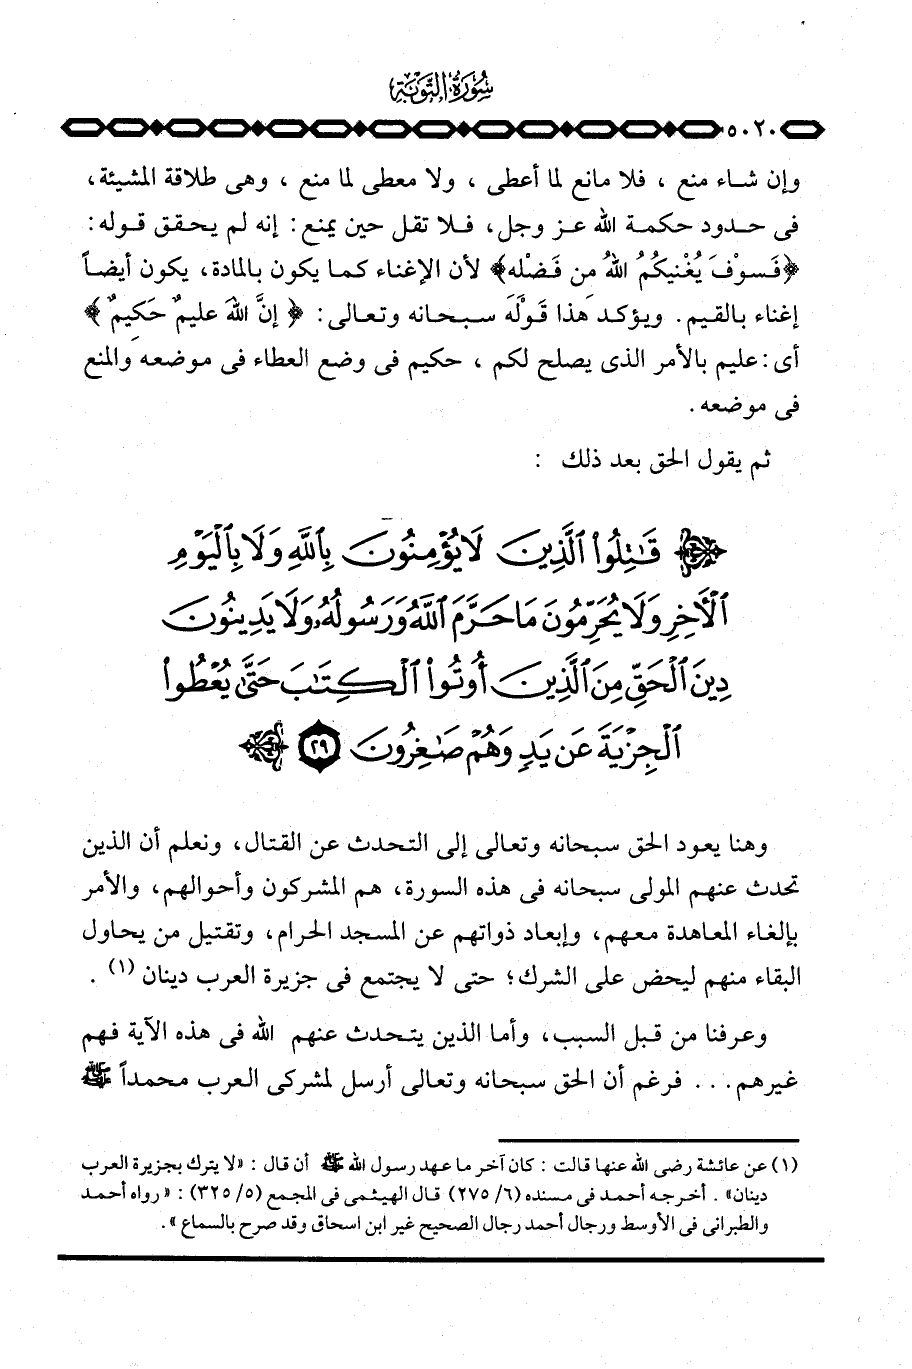 سُورَةُ التَّوْبَةِ
٥٠٢٠
وإن شاء منع ، فلا مانع لما أعطى ، ولا معطى لما منع ، وهى طلاقة المشيئة،
فى حدود حكمة الله عز وجل، فلا تقل حين يمنع: إنه لم يحقق قوله:
﴿فَسوْفَ يُغْنيكُمُ اللهُ من فَضْله﴾ لأن الإغناء كما يكون بالمادة، يكون أيضاً
إغناء بالقيم. ويؤكد هذا قَوْلَه سبحانه وتعالى: ﴿ إنَّ اللهَ عليمٌ حَكيمٌ ﴾
أى: عليم بالأمر الذى يصلح لكم ، حكيم فى وضع العطاء فى موضعه والمنع
فى موضعه.
ثم يقول الحق بعد ذلك :
﴿ قَٰتِلُوا۟ ٱلَّذِينَ لَا يُؤْمِنُونَ بِٱللَّهِ وَلَا بِٱلْيَوْمِ
ٱلْأَخِرِ وَلَا يُحَرِّمُونَ مَا حَرَّمَ ٱللَّهُ وَرَسُولُهُۥ وَلَا يَدِينُونَ
دِينَ ٱلْحَقِّ مِنَ ٱلَّذِينَ أُوتُوا۟ ٱلْكِتَٰبَ حَتَّىٰ يُعْطُوا۟
ٱلْجِزْيَةَ عَن يَدٍ وَهُمْ صَٰغِرُونَ ٢٩ ﴾
وهنا يعود الحق سبحانه وتعالى إلى التحدث عن القتال، ونعلم أن الذين
تحدث عنهم المولى سبحانه فى هذه السورة، هم المشركون وأحوالهم، والأمر
بإلغاء المعاهدة معهم، وإبعاد ذواتهم عن المسجد الحرام، وتقتيل من يحاول
البقاء منهم ليحض على الشرك؛ حتى لا يجتمع فى جزيرة العرب دينان (١) .
وعرفنا من قبل السبب، وأما الذين يتحدث عنهم الله فى هذه الآية فهم
غيرهم... فرغم أن الحق سبحانه وتعالى أرسل لمشركى العرب محمداً ﷺ
(١) عن عائشة رضى الله عنها قالت : كان آخر ما عهد رسول الله ﷺ أن قال : «لا يترك بجزيرة العرب
دينان» . أخرجه أحمد فى مسنده (٦/ ٢٧٥) قال الهيثمى فى المجمع (٥/ ٣٢٥) : « رواه أحمد
والطبرانى فى الأوسط ورجال أحمد رجال الصحيح غير ابن اسحاق وقد صرح بالسماع ».